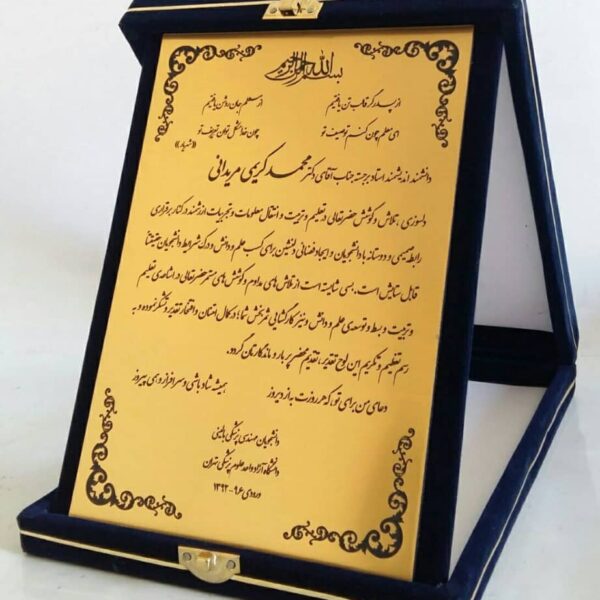 بسم الله الرحمن الرحیم
از پدر گر قالب تن یافتیم از معلم جان روشن یافتیم
ای معلم چون کنم توصیف تو چون خدا مشکل توان تعریف تو
«شهریار»
دانشمند اندیشمند استاد برجسته جناب آقای دکتر محمد کریمی مریدانی
دلسوزی، تلاش و کوشش حضرتعالی در تعلیم و تربیت و انتقال معلومات و تجربیات ارزشمند در کنار برقراری
رابطه صمیمی و دوستانه با دانشجویان و ایجاد فضائی دلنشین برای کسب علم و دانش و درک شرایط دانشجویان حقیقتاً
قابل ستایش است. بسی شایسته است از تلاش های مداوم و کوشش های مستمر حضرتعالی در اشاعه ی تعلیم
و تربیت و بسط و توسعه ی علم و دانش و نیز کارگشایی ثمربخش شما؛ در کمال امتنان و افتخار تقدیر و تشکر نموده و به
رسم تعظیم و تکریم این لوح تقدیر، تقدیم محضر پر بار و ماندگارتان گردد.
دعای من برای تو، که هر روزت به از دیروز همیشه شاد باشی و سرافراز و هی پیروز
دانشجویان مهندسی پزشکی بالینی
دانشگاه آزاد واحد علوم پزشکی تهران
ورودی ۹۶-۱۳۹۲